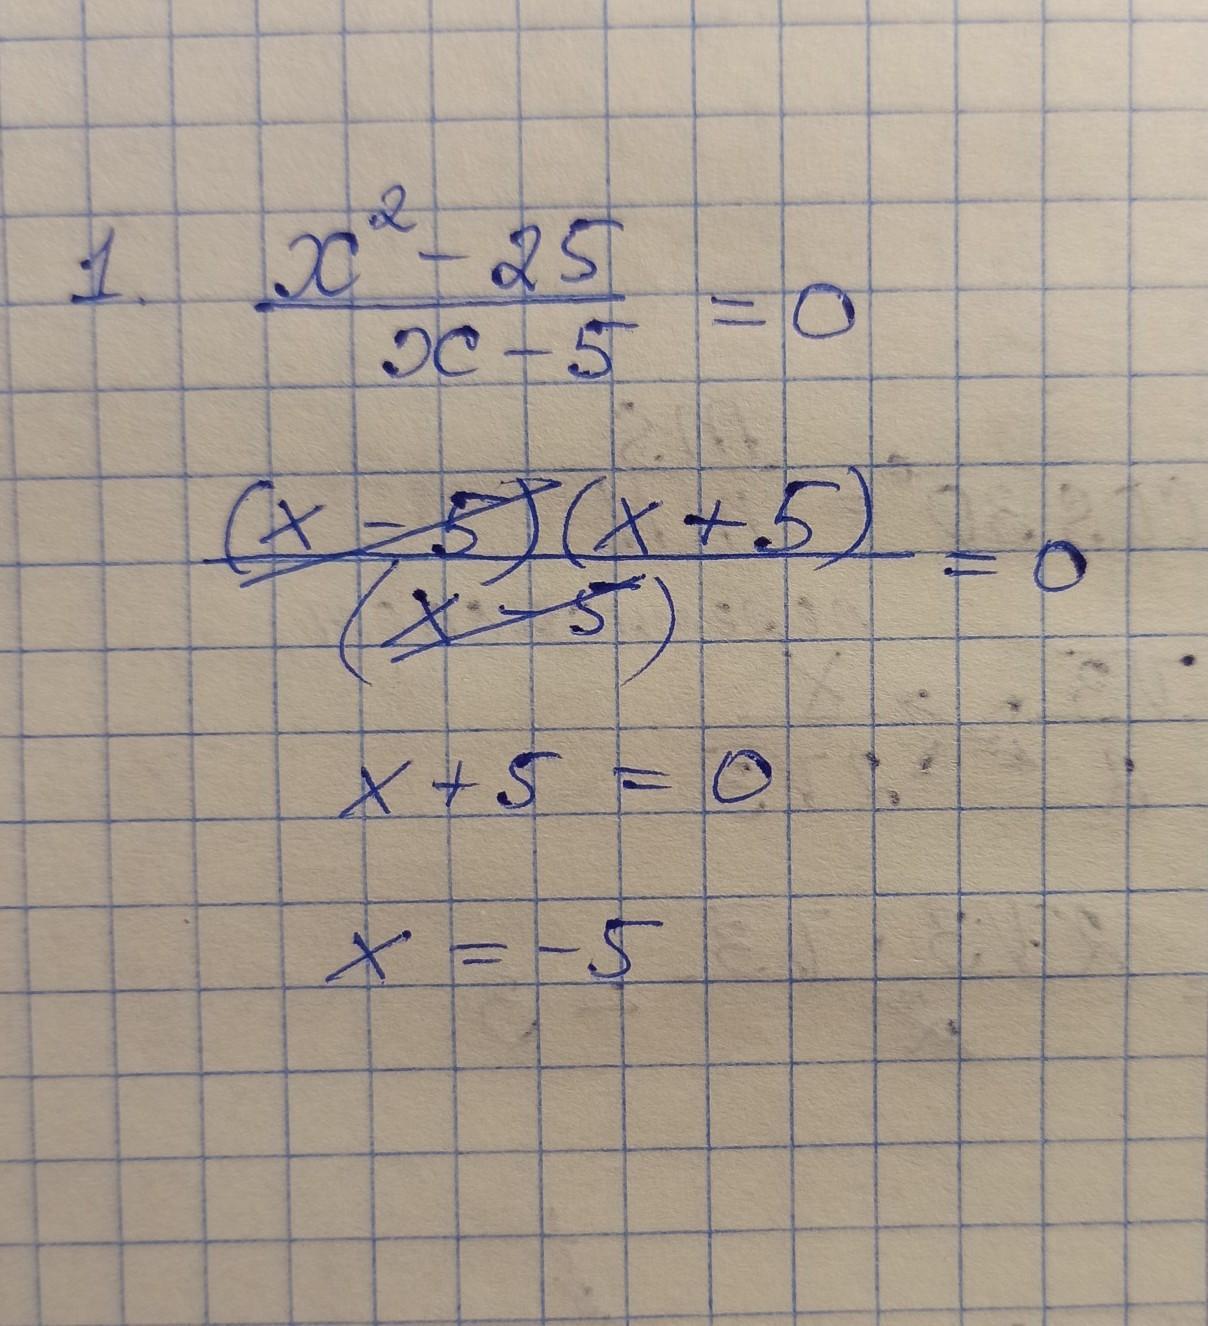 1. x² - 25 / x - 5 = 0
(x - 5)(x + 5) / (x - 5) = 0
x + 5 = 0
x = -5